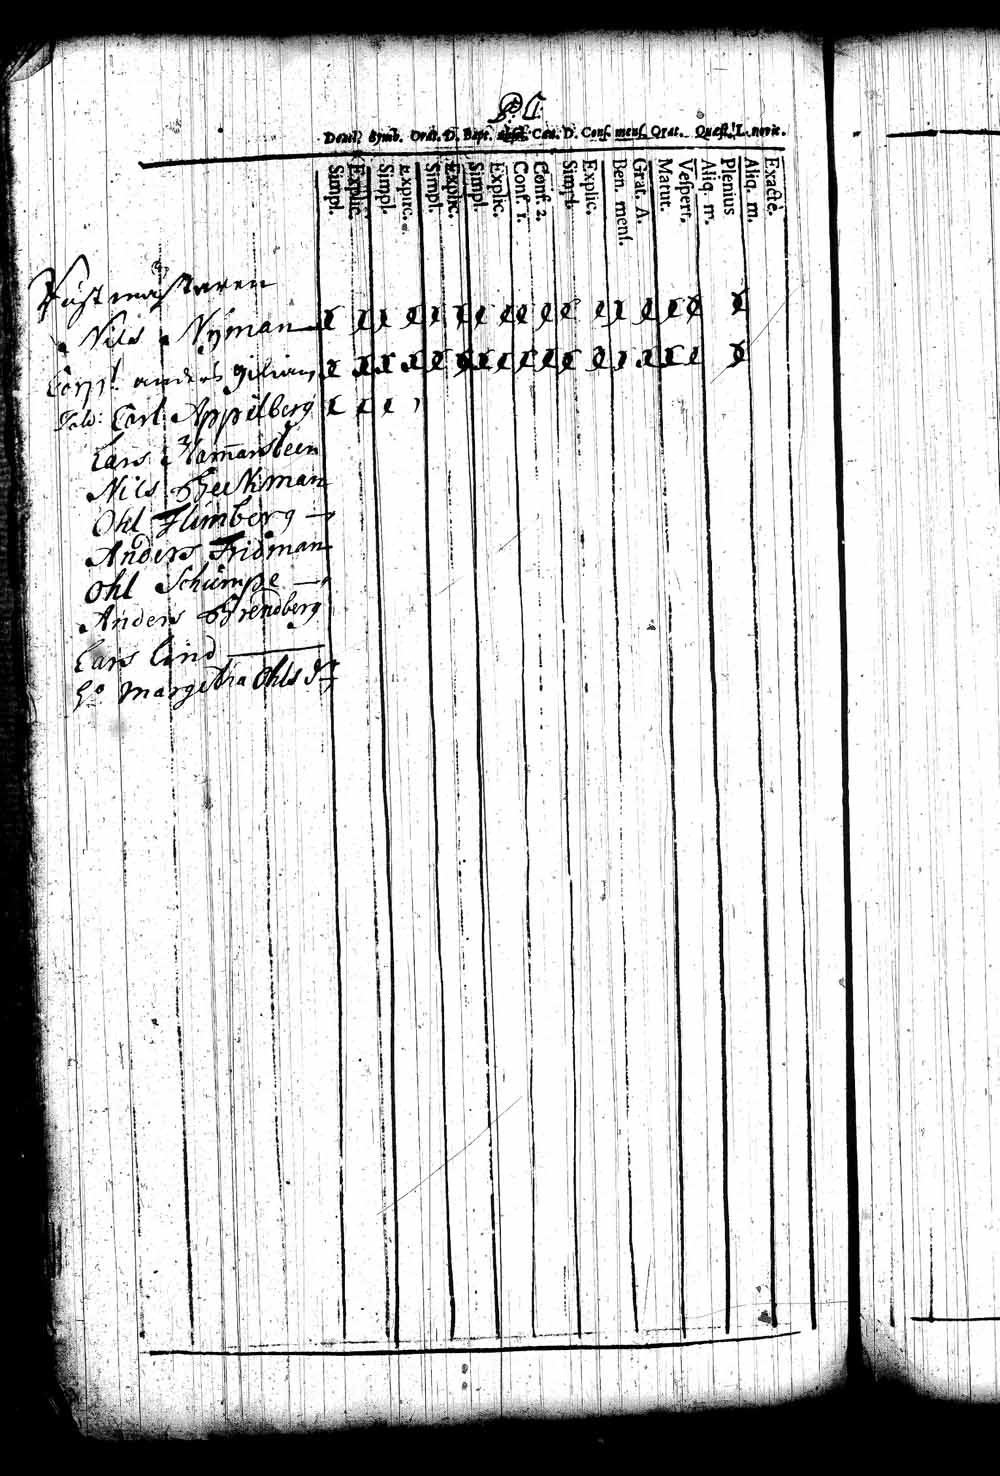 Decal. Symb. Orat. D. Bapt. Cœn. D. Conf. menſ. Orat. Quæſt. L. novit.
Simpl.
Explic.
Simpl.
Explic.
Simpl.
Explic.
Simpl.
Explic.
Conf. 1.
Conf. 2.
Simpl.
Explic.
Ben. menſ.
Grat. A.
Matut.
Veſpert.
Aliq. m.
Plenius
Aliq. m.
Exacte.
Påstmästaren
Nils Nyman
Anders
Carl Appelberg
Lars Hamarsteen
Nils Beckman
Ohl Flimberg
Anders Fridman
Ohl Schümpe
Anders Brendberg
Lars Lind
Margetha Ohls dr